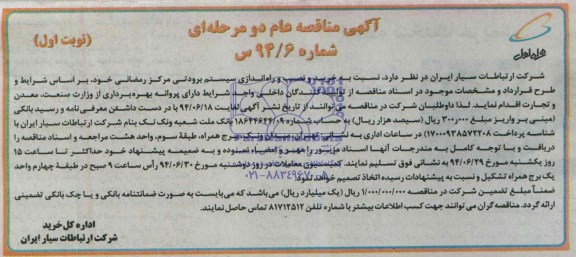 آگهی مناقصه عام دو مرحله‌ای
شماره ۹۴/۶ س
(نوبت اول)
همراه اول
شرکت ارتباطات سیار ایران در نظر دارد، نسبت به خرید و نصب و راه‌اندازی سیستم برودتی مرکز رمضانی خود، بر اساس شرایط و
طرح قرارداد و مشخصات موجود در اسناد مناقصه از تولیدکنندگان داخلی واجد شرایط دارای پروانه بهره‌برداری از وزارت صنعت، معدن
و تجارت اقدام نماید. لذا داوطلبان شرکت در مناقصه می‌توانند از تاریخ نشر آگهی لغایت ۹۴/۰۶/۱۸ با در دست داشتن معرفی نامه و رسید بانکی
(مبنی بر واریز مبلغ ۳۰۰,۰۰۰ ریال (سیصد هزار ریال) به حساب شماره ۱۸۶۴۴۶۴۴۰۹ بانک ملت شعبه ونک تک بنام شرکت ارتباطات سیار ایران با
شناسه پرداخت ۱۷۰۰۰۹۳۸۵۷۳۲۰۸) در ساعات اداری به برج همراه، طبقه سوم، واحد هشت مراجعه و اسناد مناقصه را
دریافت و با توجه کامل به مندرجات آنها اسناد مزبور را مهر و امضاء نموده و به ضمیمه پیشنهاد خود حداکثر تا ساعت ۱۵
روز یکشنبه مورخ ۹۴/۰۶/۲۹ به نشانی فوق تسلیم نمایند. کمیسیون معاملات در روز دوشنبه مورخ ۹۴/۰۶/۳۰ رأس ساعت ۹ صبح در طبقه چهارم واحد
یک برج همراه تشکیل و نسبت به پیشنهادات رسیده اتخاذ تصمیم خواهد نمود.
۰۲۱-۸۸۳۴۹۶۷۰
ضمناً مبلغ تضمین شرکت در مناقصه ۱/۰۰۰/۰۰۰/۰۰۰ ریال (یک میلیارد ریال) می‌باشد که می‌بایست به صورت ضمانتنامه بانکی و یا چک بانکی تضمینی
ارائه گردد. مناقصه گران می توانند جهت کسب اطلاعات بیشتر با شماره تلفن ۸۱۷۱۳۵۱۲ تماس حاصل نمایند.
اداره کل خرید
شرکت ارتباطات سیار ایران